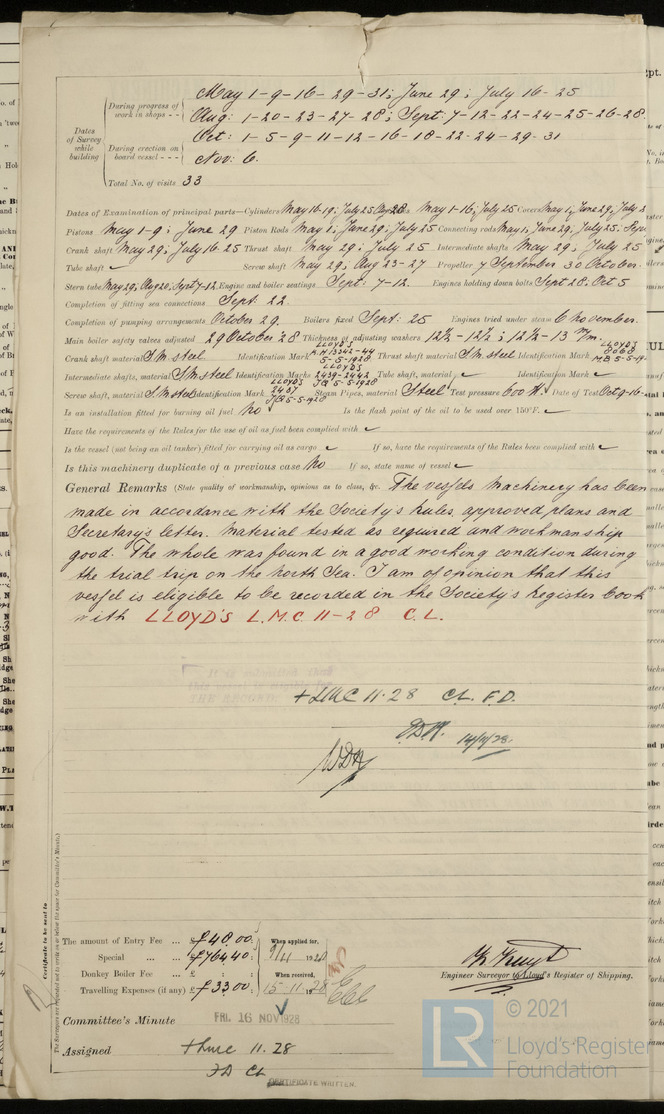 May 1-9-16-29-31; June 29; July 16-25
During progress of work in shops - -
Aug: 1-20-23-27-28; Sept: 7-12-22-24-25-26-28.
Dates of Survey while building
Oct: 1-5-9-11-12-16-18-22-24-29-31
During erection on board vessel - - -
Nov: 6.
Total No. of visits 33
Dates of Examination of principal parts—Cylinders May 16-19; July 25 Aug 28 May 1-16; July 25 Covers May 1; June 29, July 2
Pistons May 1-9; June 29 Piston Rods May 1; June 29; July 25 Connecting rods May 1; June 29, July 25. Sep
Crank shaft May 29; July 16-25 Thrust shaft May 29; July 25 Intermediate shafts May 29; July 25
Tube shaft Screw shaft May 29; Aug 23-27 Propeller 7 September 30 October.
Stern tube May 29, Aug 20, Sept 7-12. Engine and boiler seatings Sept: 7-12. Engines holding down bolts Sept 28: Oct 5
Completion of fitting sea connections Sept. 22
Completion of pumping arrangements October 29. Boilers fixed Sept: 25 Engines tried under steam 6 November.
Main boiler safety valves adjusted 29 October '28 Thickness of adjusting washers 12½-12½; 12½-13 m/m.
Crank shaft material S.M. steel Identification Mark LLOYD'S 5-5-1928 Thrust shaft material S.M. steel Identification Mark LLOYD'S
Intermediate shafts, material S.M steel Identification Marks LLOYD'S 2439-2442 JQ 5-5-1928 Tube shaft, material Identification Mark
Screw shaft, material S.M Steel Identification Mark LLOYD'S 2437 JQ 5-5-1928 Steam Pipes, material Steel Test pressure 600 #. Date of Test Oct 9-16-
Is an installation fitted for burning oil fuel No Is the flash point of the oil to be used over 150°F.
Have the requirements of the Rules for the use of oil as fuel been complied with
Is the vessel (not being an oil tanker) fitted for carrying oil as cargo If so, have the requirements of the Rules been complied with
Is this machinery duplicate of a previous case No If so, state name of vessel
General Remarks (State quality of workmanship, opinions as to class, &c. The vessels machinery has been
made in accordance with the Society's Rules, approved plans and
Secretary's letter. Material tested as required and workmanship
good. The whole was found in a good working condition during
the trial trip on the North Sea. I am of opinion that this
vessel is eligible to be recorded in the Society's Register book
with LLOYD'S L.M.C. 11-28 C.L.
It is submitted that
this vessel is eligible for
THE RECORD
+ LMC 11.28 CL. F.D.
14/11/28.
Certificate to be sent to
The amount of Entry Fee ... £ 40.00:
Special ... ... £ 764.40:
Donkey Boiler Fee ... £ : :
Travelling Expenses (if any) £ 33.00:
When applied for,
9/11 1928
When received,
15-11-1928
Engineer Surveyor to Lloyd's Register of Shipping.
Committee's Minute
FRI. 16 NOV 1928
Assigned + LMC 11.28
FD CL
CERTIFICATE WRITTEN.
© 2021
LR
Lloyd's Register
Foundation